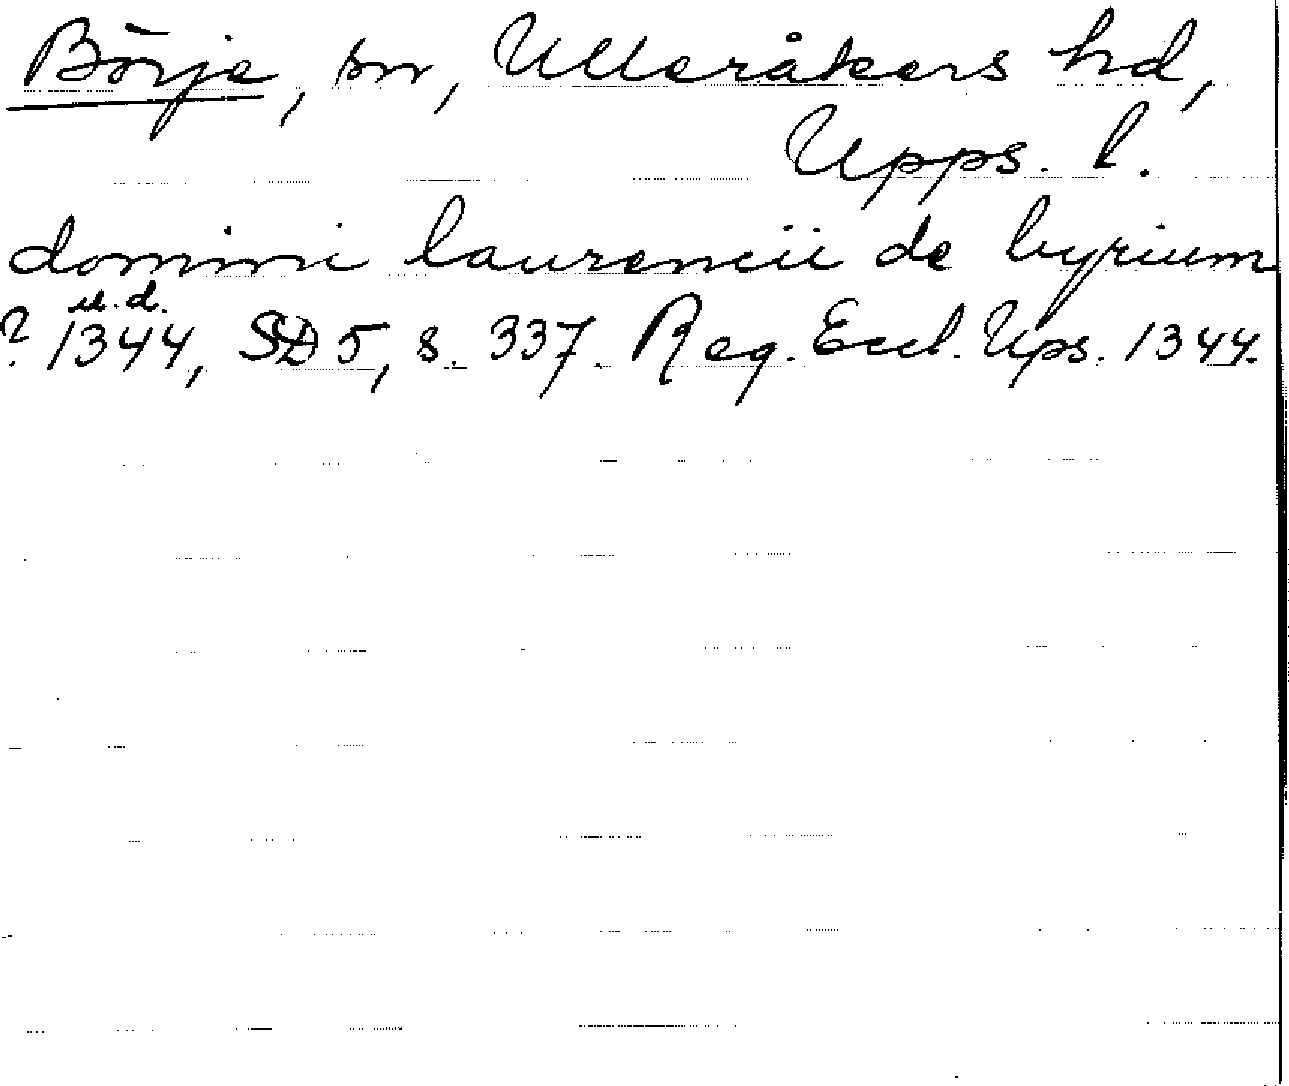 Börje, sn, Ulleråkers hd,
Upps. l.
domini laurencii de byrium
u.d.
? 1344, SD 5, s. 337. Reg. Eccl. Ups. 1344.